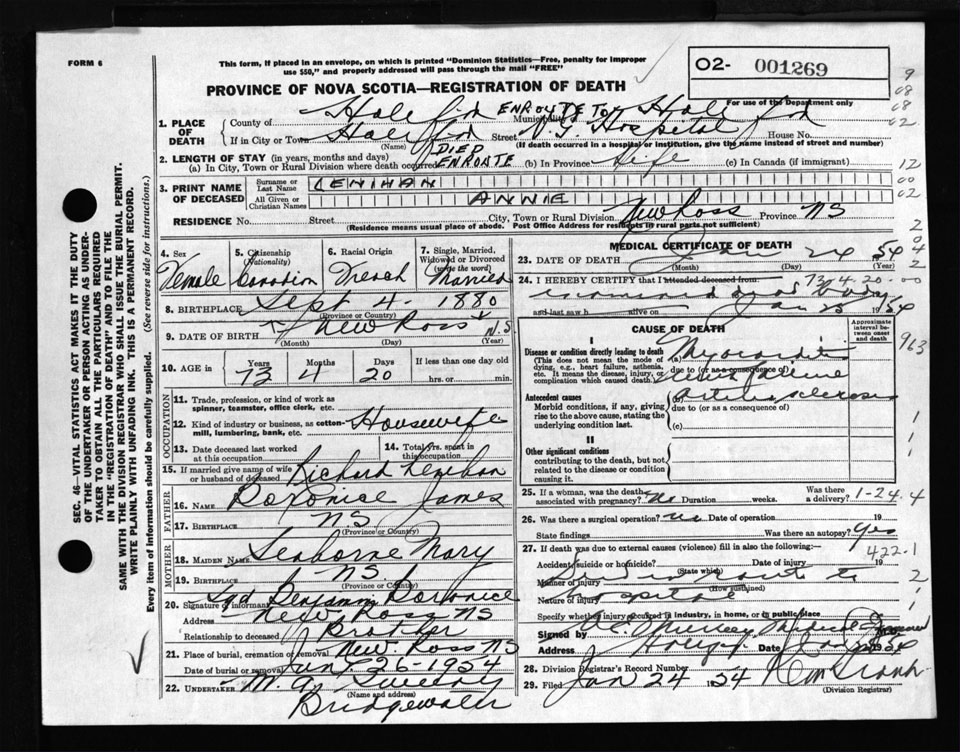 FORM 6
This form, if placed in an envelope, on which is printed "Dominion Statistics—Free, penalty for improper
use $50," and properly addressed will pass through the mail "FREE"
O2- 001269
PROVINCE OF NOVA SCOTIA—REGISTRATION OF DEATH
For use of the Department only
1. PLACE OF DEATH
County of Halifax ENROUTE TO Municipality Halifax
If in City or Town Halifax Street V.G. Hospital House No.
(Name) (If death occurred in a hospital or institution, give the name instead of street and number)
2. LENGTH OF STAY (in years, months and days)
(a) In City, Town or Rural Division where death occurred DIED ENROATE (b) In Province Life (c) In Canada (if immigrant)
3. PRINT NAME OF DECEASED
Surname or Last Name LENIHAN
All Given or Christian Names ANNIE
RESIDENCE No. Street City, Town or Rural Division New Ross Province NS
(Residence means usual place of abode. Post Office Address for residents in rural parts not sufficient)
4. Sex Female
5. Citizenship (Nationality) Canadian
6. Racial Origin French
7. Single, Married, Widowed or Divorced (write the word) Married
8. BIRTHPLACE Sept 4 - 1880
(Province or Country)
9. DATE OF BIRTH New Ross N.S
(Month) (Day) (Year)
10. AGE in Years Months Days If less than one day old
73 4 20 hrs. or min.
OCCUPATION
11. Trade, profession, or kind of work as spinner, teamster, office clerk, etc.
12. Kind of industry or business, as cotton-mill, lumbering, bank, etc. Housewife
13. Date deceased last worked at this occupation
14. Total yrs. spent in this occupation
15. If married give name of wife or husband of deceased Richard Lenihan
FATHER
16. NAME James
17. BIRTHPLACE NS
(Province or Country)
MOTHER
18. MAIDEN NAME Seaborne Mary
19. BIRTHPLACE NS
(Province or Country)
20. Signature of informant Sgd Benjamin
Address New Ross NS
Relationship to deceased Brother
21. Place of burial, cremation or removal New Ross NS
Date of burial or removal Jan. 26 - 1954
22. UNDERTAKER M. A. Sweeny
(Name and address)
Bridgewater
MEDICAL CERTIFICATE OF DEATH
23. DATE OF DEATH Jan 24 54
(Month) (Day) (Year)
24. I HEREBY CERTIFY that I attended deceased from 73-4-20-00
examined dead body
and last saw h alive on Jan 25 1954
CAUSE OF DEATH
Approximate interval between onset and death
I
Disease or condition directly leading to death
(This does not mean the mode of dying, e.g., heart failure, asthenia, etc. It means the disease, injury, or complication which caused death.)
(a) Myocarditis
due to (or as a consequence of)
Antecedent causes
Morbid conditions, if any, giving rise to the above cause, stating the underlying condition last.
due to (or as a consequence of)
(c)
II
Other significant conditions
contributing to the death, but not related to the disease or condition causing it.
25. If a woman, was the death associated with pregnancy? no Duration weeks. Was there a delivery? 1-24.4
26. Was there a surgical operation? no Date of operation 19
State findings Was there an autopsy? Yes
27. If death was due to external causes (violence) fill in also the following:— 422.1
Accident, suicide or homicide? Date of injury 19
(State which)
Manner of injury
(How sustained)
Nature of injury hospital
Specify whether injury occurred in industry, in home, or in public place
Signed by Medical Examiner
Address Date
28. Division Registrar's Record Number
29. Filed Jan 24 1954
(Division Registrar)
SEC. 46—VITAL STATISTICS ACT MAKES IT THE DUTY
OF THE UNDERTAKER OR PERSON ACTING AS UNDER-
TAKER TO OBTAIN ALL THE PARTICULARS REQUIRED
IN THE "REGISTRATION OF DEATH" AND TO FILE THE
SAME WITH THE DIVISION REGISTRAR WHO SHALL ISSUE THE BURIAL PERMIT.
WRITE PLAINLY WITH UNFADING INK. THIS IS A PERMANENT RECORD.
Every item of information should be carefully supplied. (See reverse side for instructions.)
9
08
08
02
12
00
02
2
0
4
2
963
1
1
2
1
1